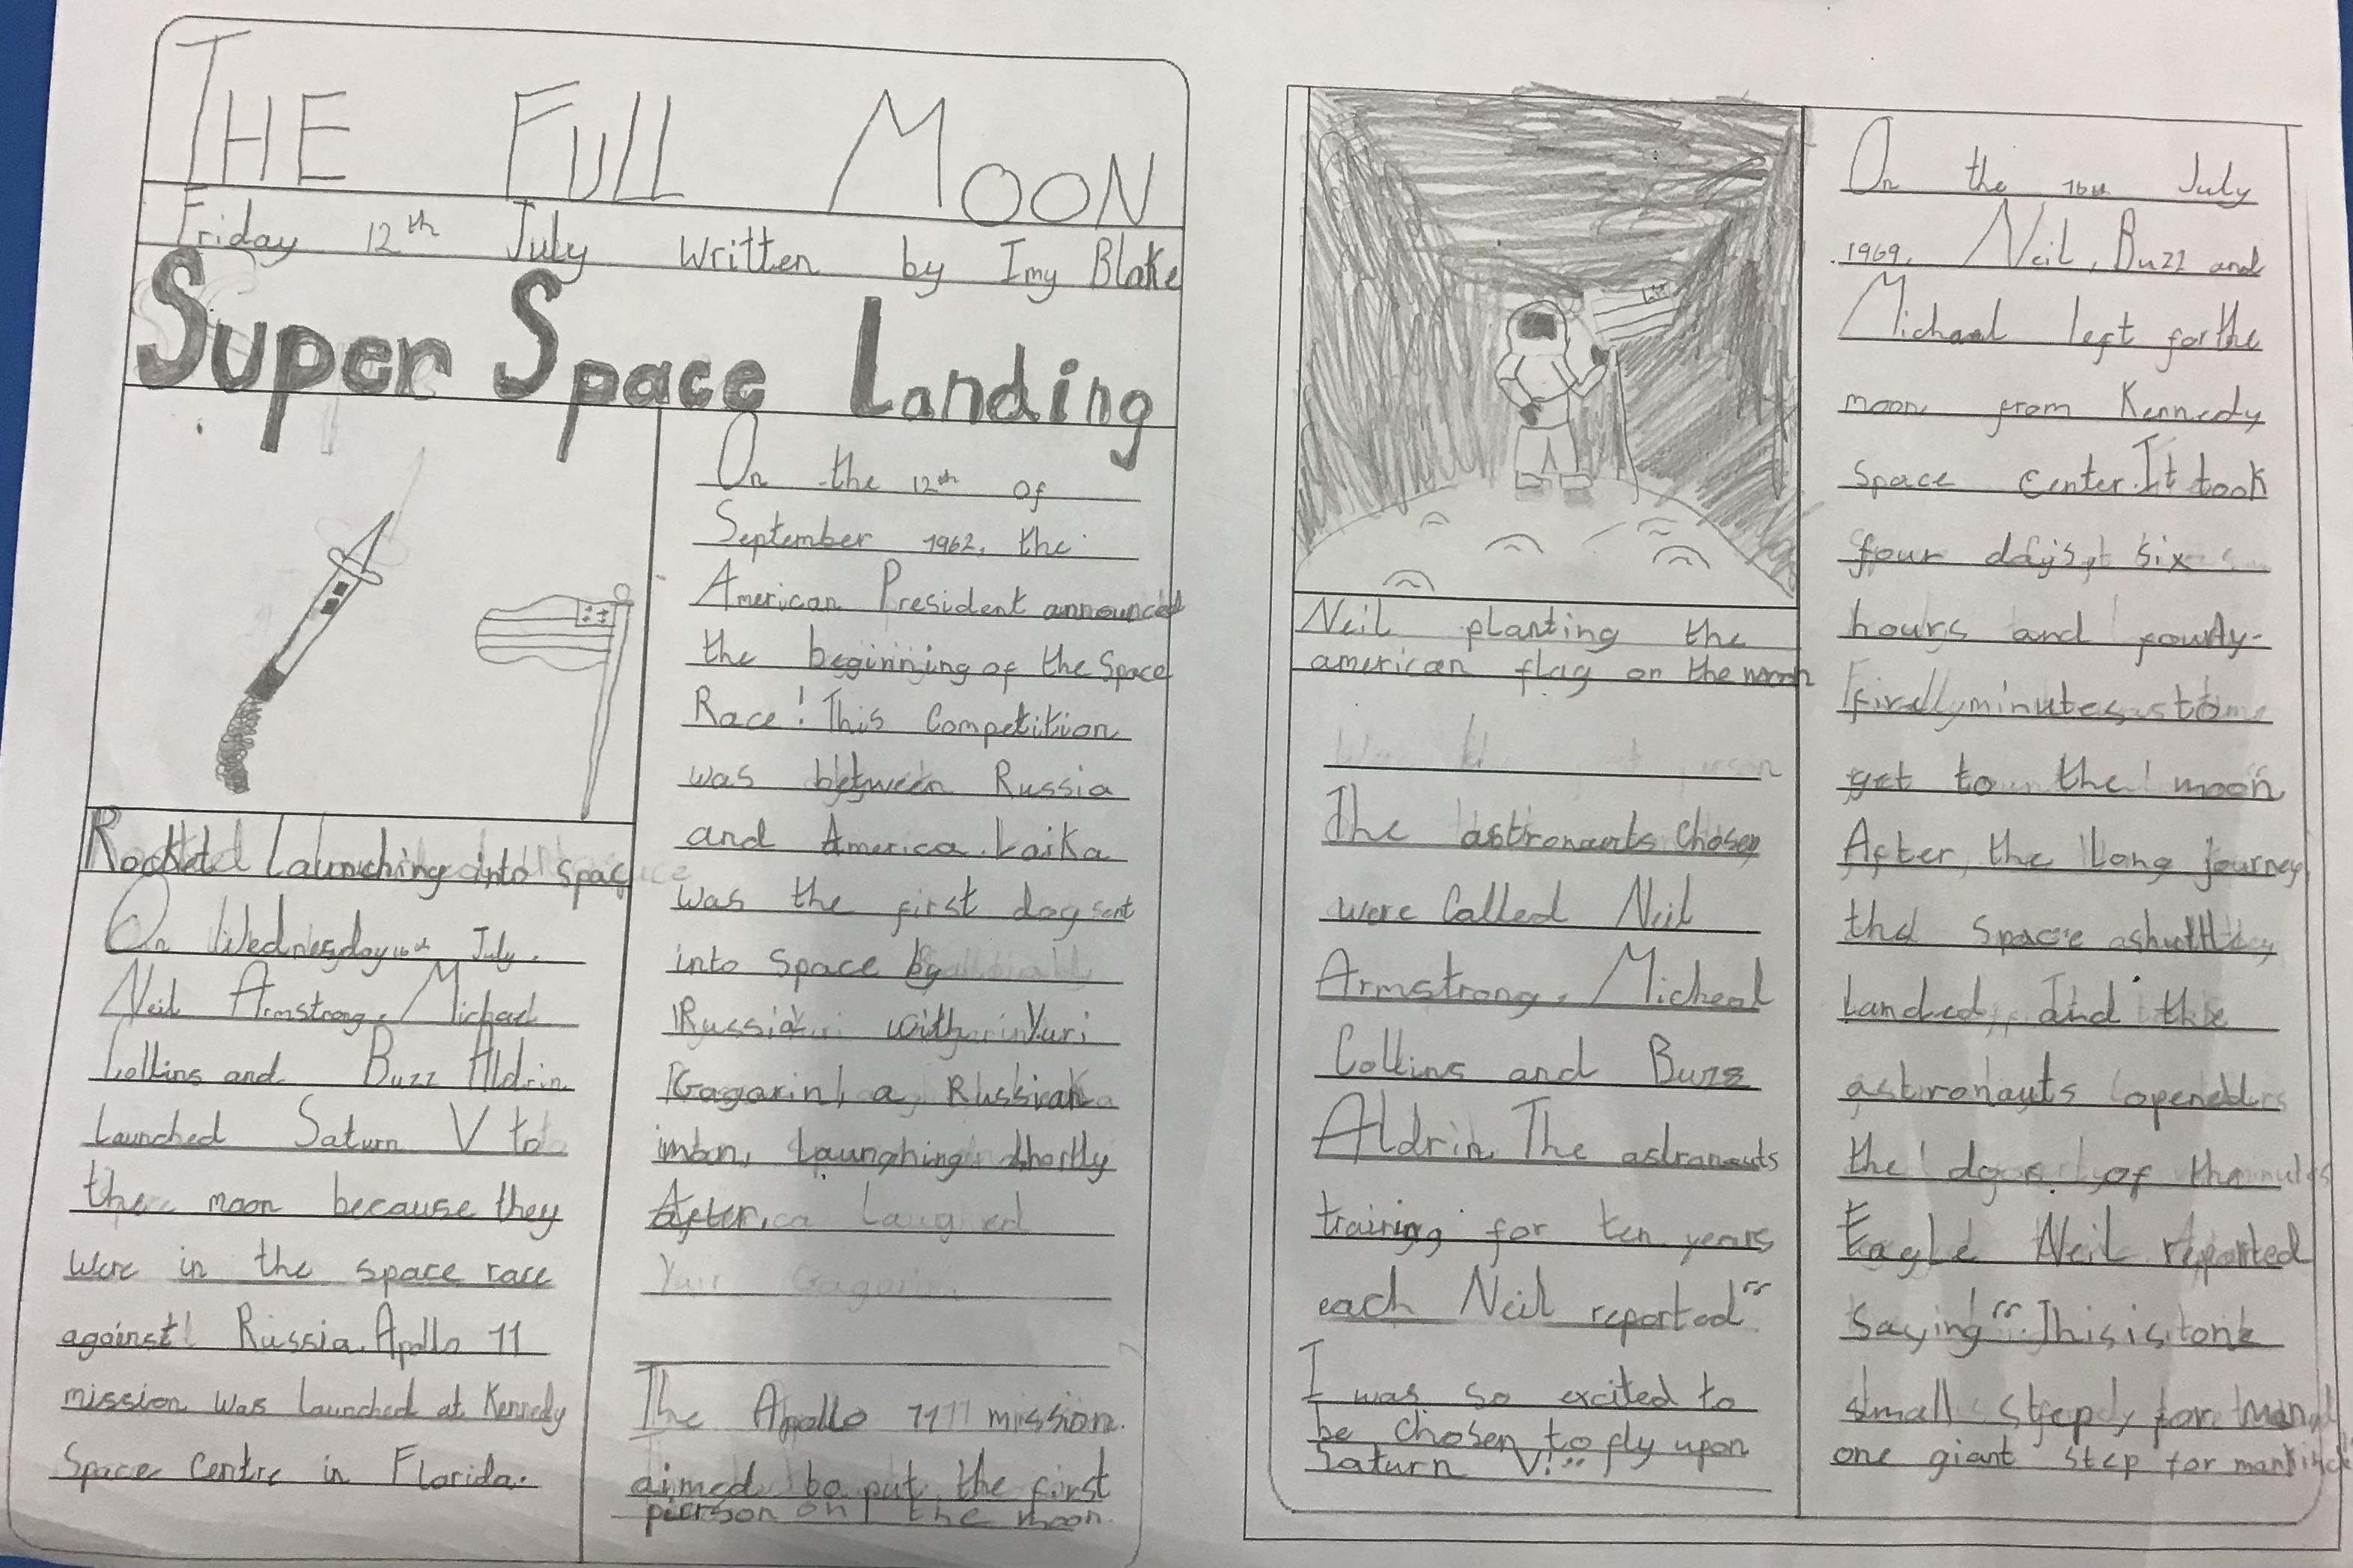 THE FULL MOON
Friday 12th July written by Imy Blake
Super Space Landing
Rocket Launching into space
On Wednesday 16th July,
Neil Armstrong, Michael
Collins and Buzz Aldrin
launched Saturn V to
the moon because they
were in the space race
against Russia. Apollo 11
mission was launched at Kennedy
Space Centre in Florida.
On the 12th of
September 1962, the
American President announced
the beginning of the Space
Race! This Competition
was between Russia
and America. Laika
was the first dog sent
into space by
Russia with Yuri
Gagarin, a Russian
man, launching shortly
After,
The Apollo 11 mission
aimed to put the first
person on the moon.
Neil planting the
american flag on the moon
The astronauts chosen
were Called Neil
Armstrong, Micheal
Collins and Buzz
Aldrin. The astronauts
training for ten years
each Neil reported "
I was so excited to
be chosen to fly upon
Saturn V!"
On the 16th July
1969, Neil, Buzz and
Michael left for the
moon from Kennedy
Space Center. It took
four days, six
hours and
minutes to
get to the moon
After the long journey
the space shuttle
landed and the
astronauts opened
the door of the
Eagle Neil reported
Saying " This is one
small step for man,
one giant step for mankind"